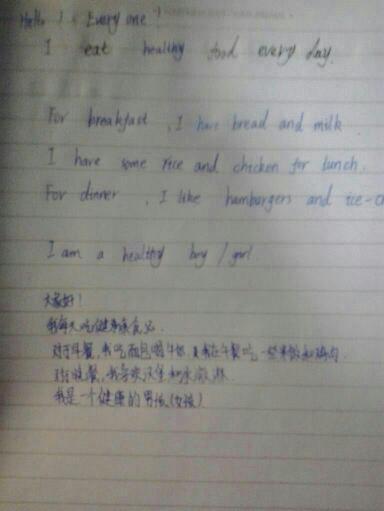 Hello! Every one!
I eat healthy food every day.
For breakfast, I have bread and milk
I have some rice and chicken for lunch.
For dinner, I like hamburgers and ice-c
I am a healthy boy / girl
大家好!
我每天吃健康食品.
对于早餐,我吃面包喝牛奶.我在午餐吃一些米饭和鸡肉
对于晚餐,我喜欢汉堡和冰激淋.
我是一个健康的男孩(女孩)